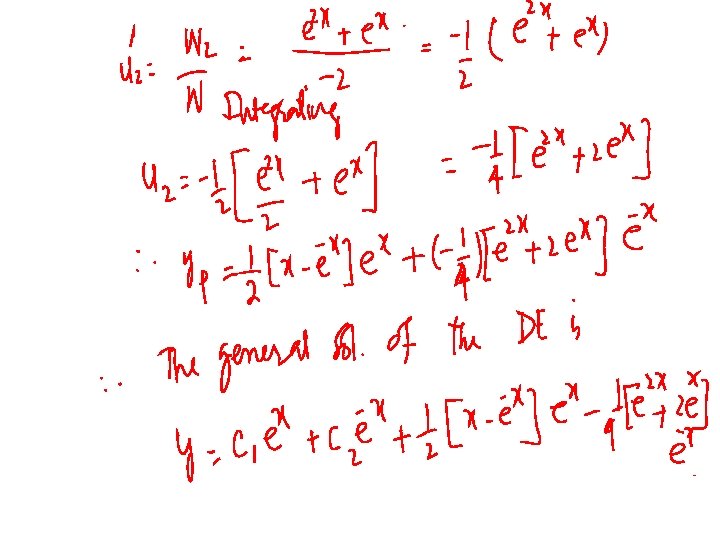 u₂' = W₂/W = (e^{2x} + e^x)/-2 = -1/2 (e^{2x} + e^x)
Integrating
u₂ = -1/2 [e^{2x}/2 + e^x] = -1/4 [e^{2x} + 2e^x]
∴ y_p = 1/2 [x - e^{-x}] e^x + (-1/4)[e^{2x} + 2e^x] e^{-x}
∴ The general sol. of the DE is
y = c₁e^x + c₂e^{-x} + 1/2 [x - e^{-x}] e^x - 1/4 [e^{2x} + 2e^x] e^{-x}